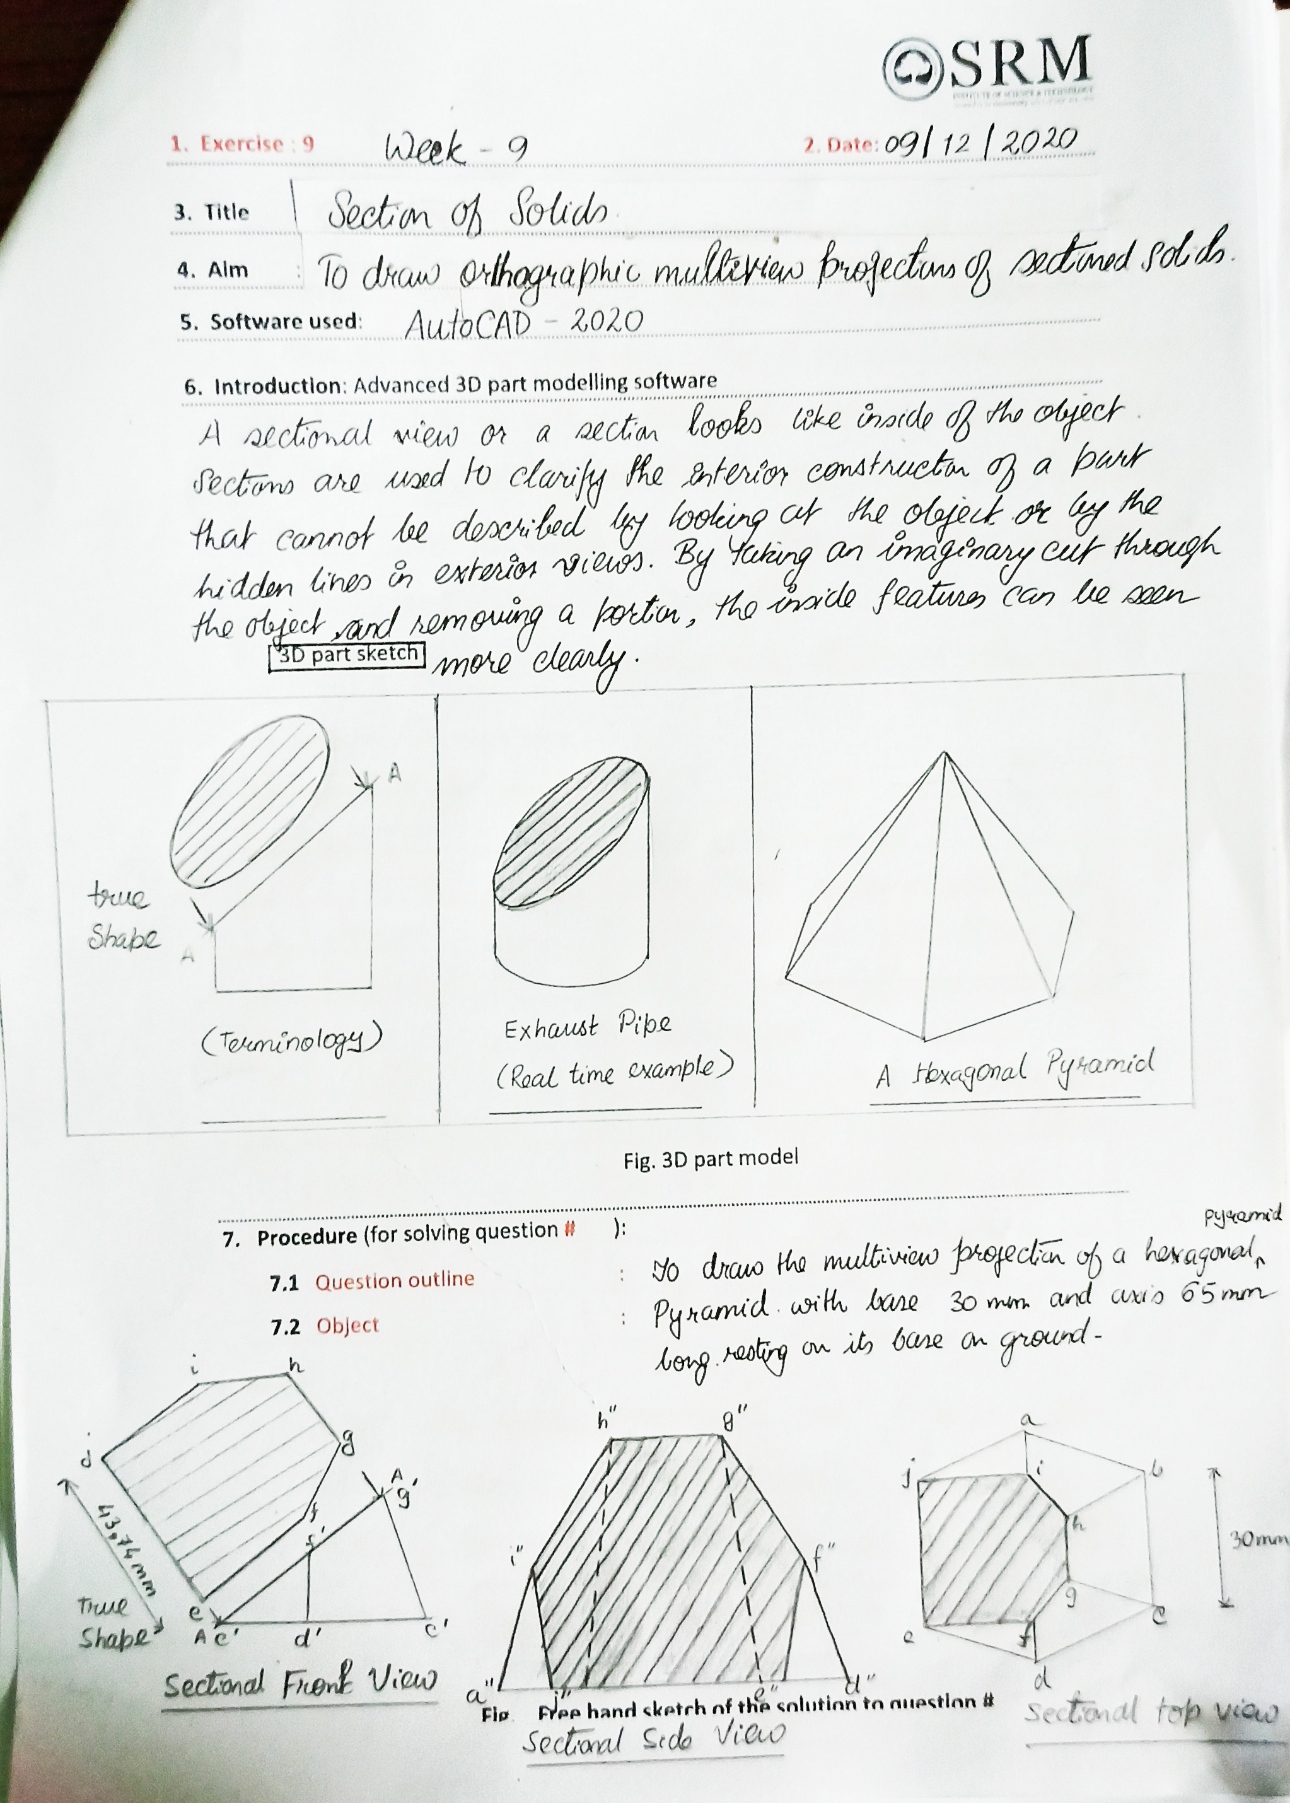 SRM
INSTITUTE OF SCIENCE & TECHNOLOGY
1. Exercise : 9 Week - 9 2. Date: 09/12/2020
3. Title Section of Solids.
4. Aim : To draw orthographic multiview projections of sectioned solids.
5. Software used: AutoCAD - 2020
6. Introduction: Advanced 3D part modelling software
A sectional view or a section looks like inside of the object.
Sections are used to clarify the interior construction of a part
that cannot be described by looking at the object or by the
hidden lines in exterior views. By taking an imaginary cut through
the object, and removing a portion, the inside features can be seen
3D part sketch more clearly.
A
true
Shape
A
(Terminology)
Exhaust Pipe
(Real time example)
A Hexagonal Pyramid
Fig. 3D part model
7. Procedure (for solving question # ):
pyramid
7.1 Question outline : To draw the multiview projection of a hexagonal
7.2 Object : Pyramid with base 30 mm and axis 65 mm
long resting on its base on ground-
i h
j g
A
g'
f
f'
43,74 mm
True
Shape
e
A e' d' c'
Sectional Front View
h" g"
i" f"
a" j" e" d"
Fig. Free hand sketch of the solution to question #
Sectional Side View
a
j i b
h
30mm
g
e f c
d
Sectional top view